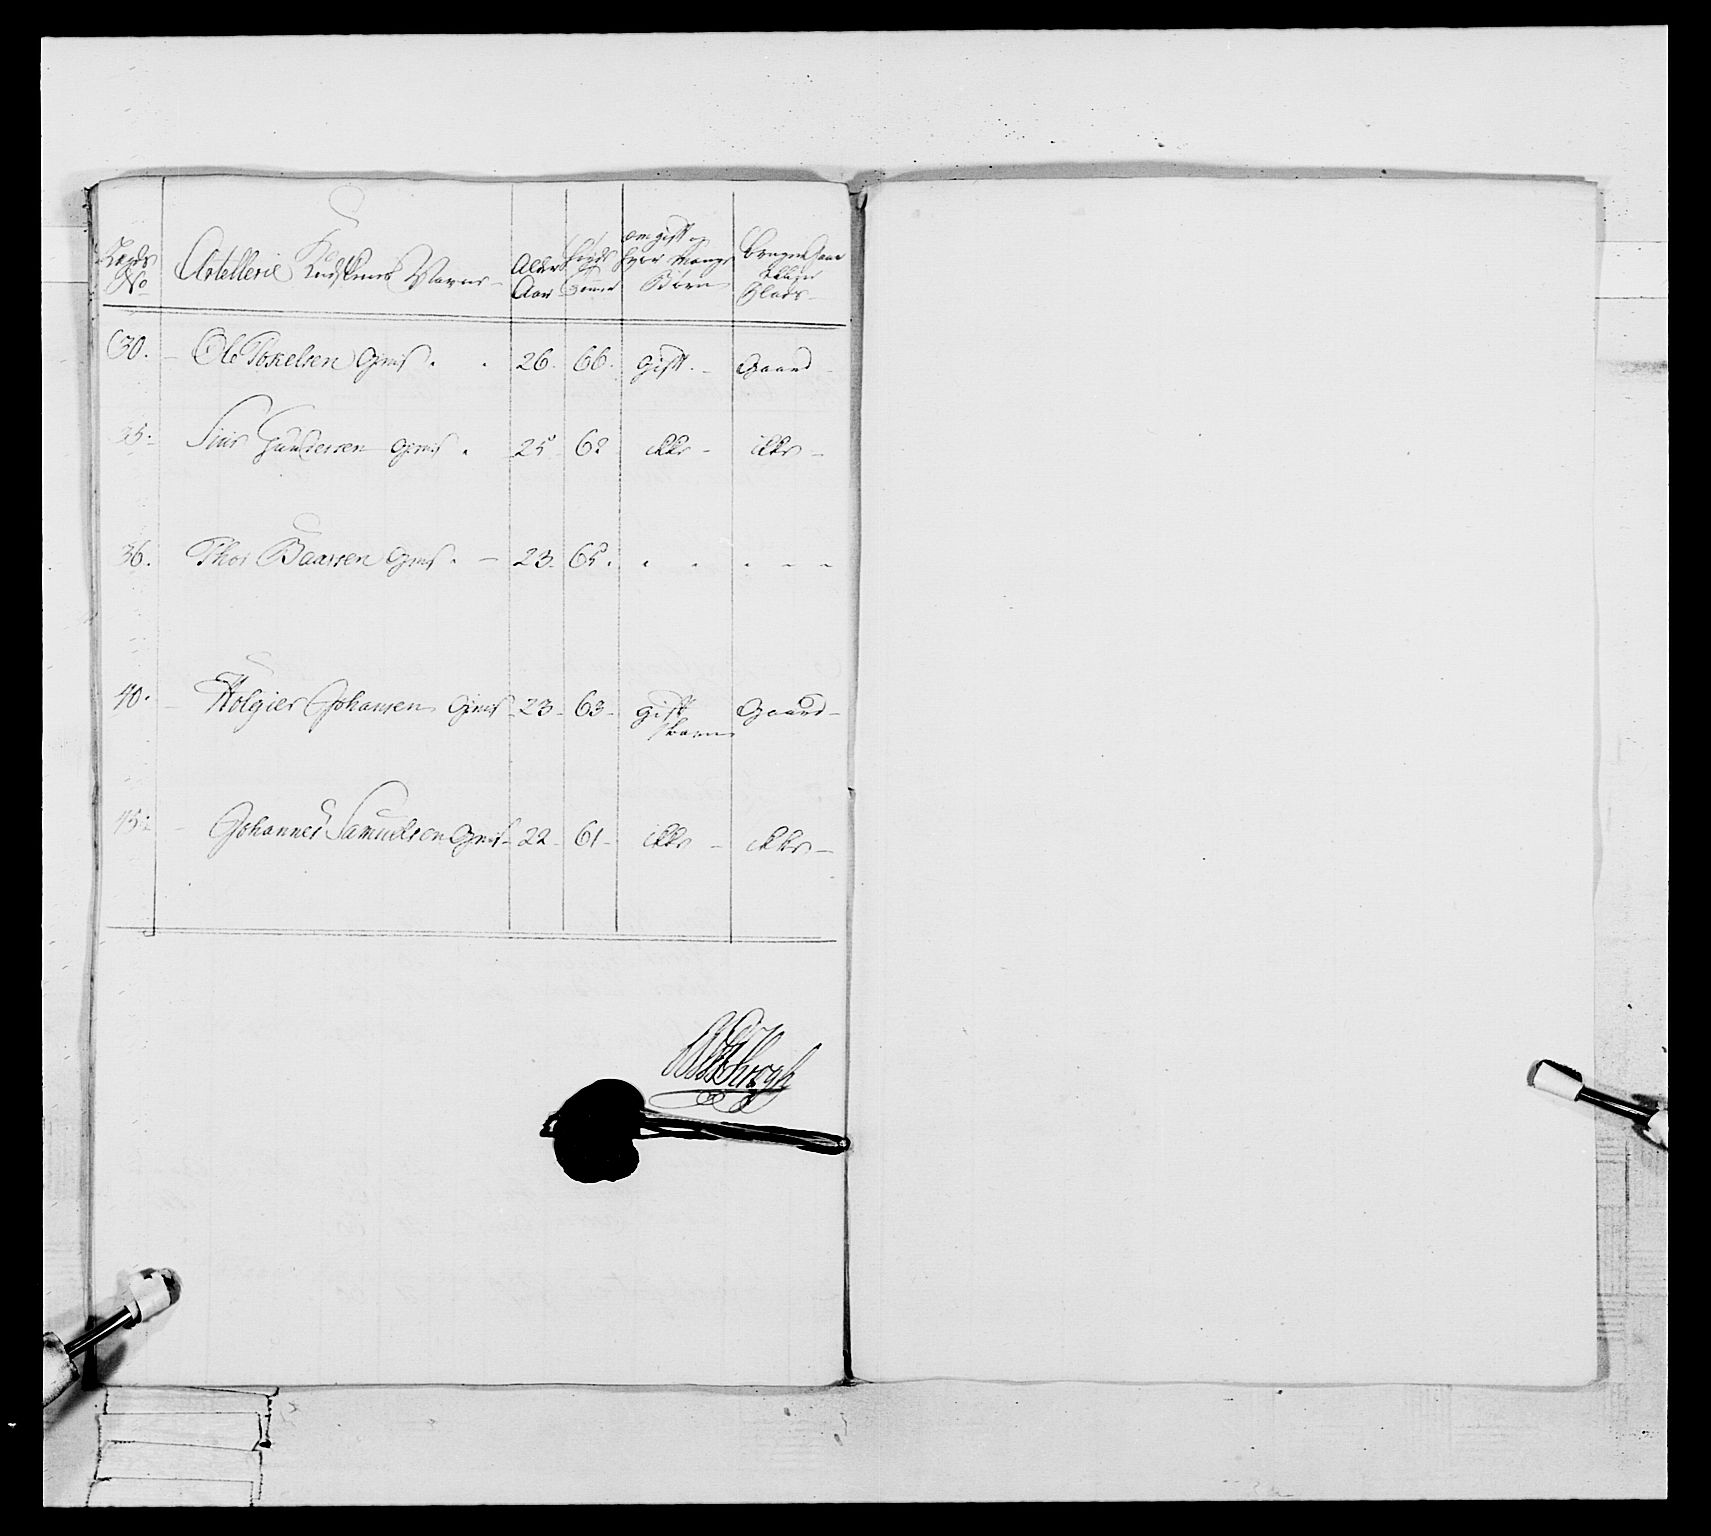 Lægds No Artellerie Kudskenes Navne Alder Aar Høyde Tommer om gift og hvor mange Børn bruger Gaard eller Plads
30. Ole Toxelsen 26. 66. gift. Gaard
35. Siur Gundersen 25 62 ikke ikke
36. Thor Baarsen 23. 65.
40. Holgier Johansen 23 63 gift Gaard
45. Johannes Samuelsen 22 61 ikke ikke